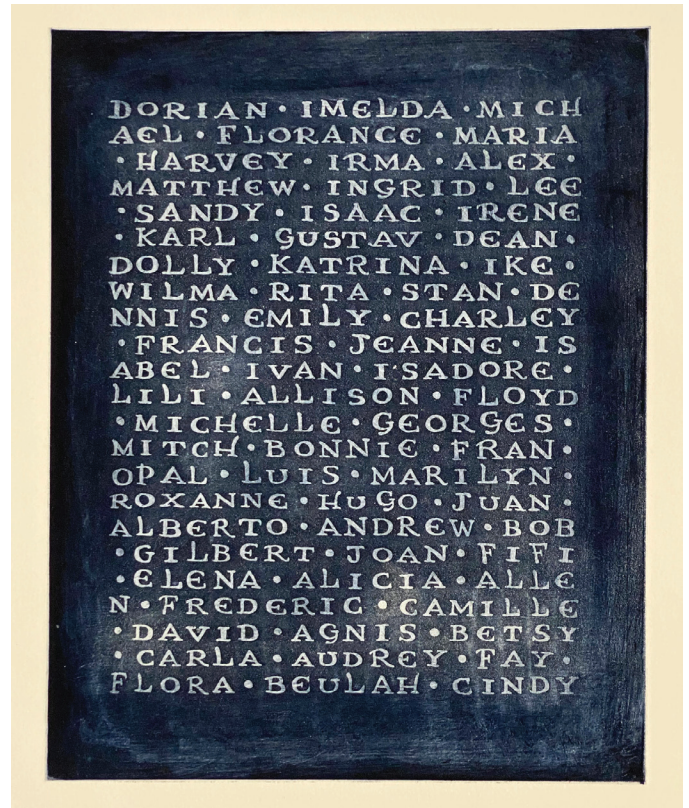 DORIAN • IMELDA • MICH
AEL • FLORANCE • MARIA
• HARVEY • IRMA • ALEX •
MATTHEW • INGRID • LEE
• SANDY • ISAAC • IRENE
• KARL • GUSTAV • DEAN •
DOLLY • KATRINA • IKE •
WILMA • RITA • STAN • DE
NNIS • EMILY • CHARLEY
• FRANCIS • JEANNE • IS
ABEL • IVAN • ISADORE •
LILI • ALLISON • FLOYD
• MICHELLE • GEORGES •
MITCH • BONNIE • FRAN •
OPAL • LUIS • MARILYN •
ROXANNE • HUGO • JUAN •
ALBERTO • ANDREW • BOB
• GILBERT • JOAN • FIFI
• ELENA • ALICIA • ALLE
N • FREDERIC • CAMILLE
• DAVID • AGNIS • BETSY
• CARLA • AUDREY • FAY •
FLORA • BEULAH • CINDY